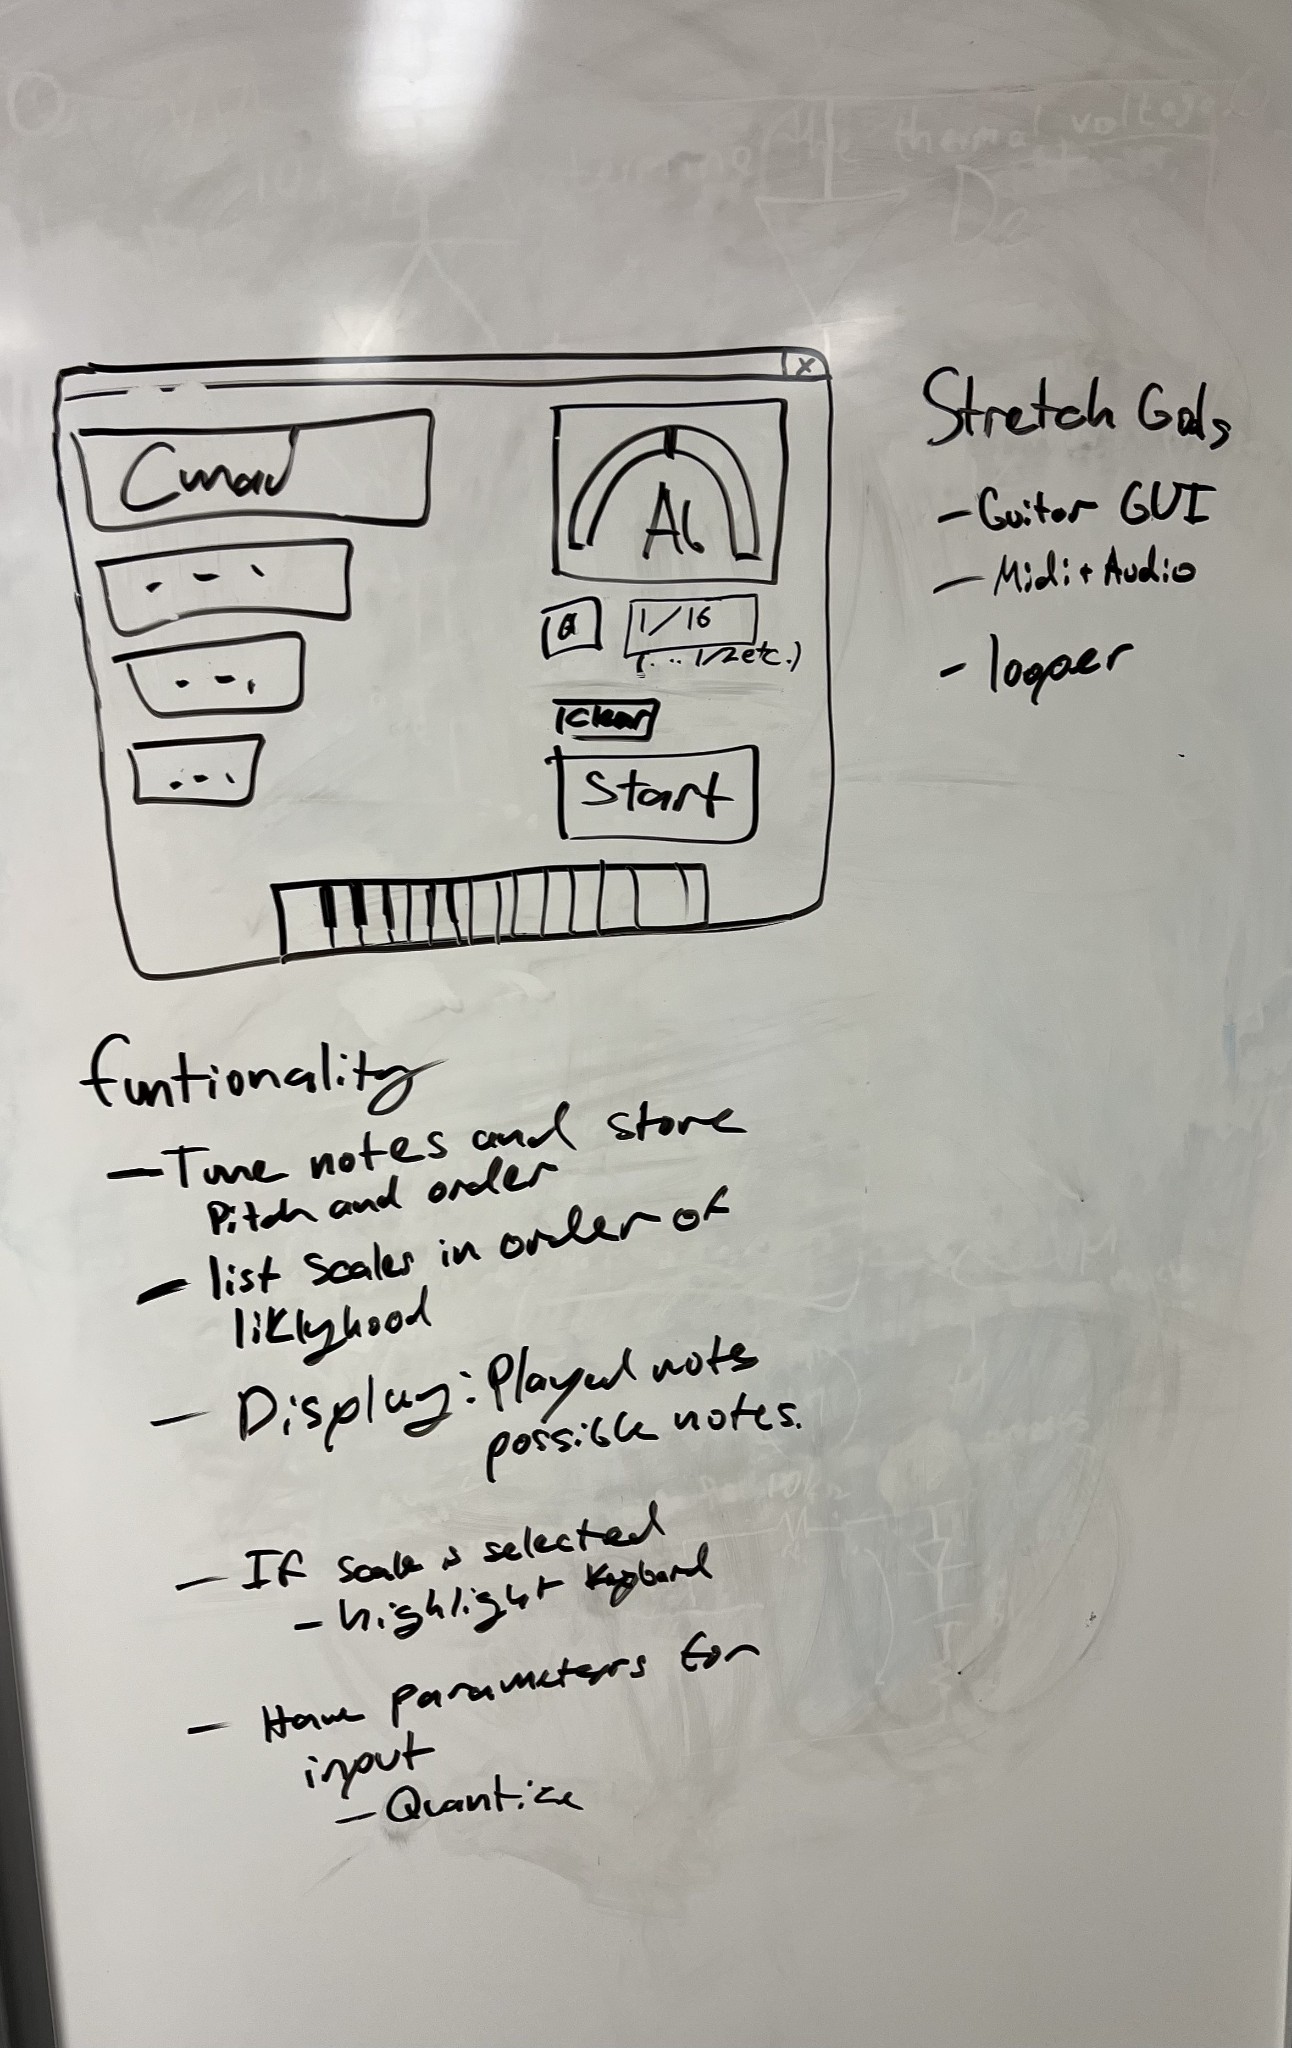 the thermal voltage
X
Cmaj
Ab
Q
1/16
(... 1/2 etc.)
clear
Start
Stretch Goals
- Guitar GUI
- Midi + Audio
- looper
funtionality
- Tune notes and store
Pitch and order
- list Scales in order of
liklyhood
- Display: Played notes
possible notes.
- If scale is selected
- highlight keyboard
- Have parameters for
input
- Quantize